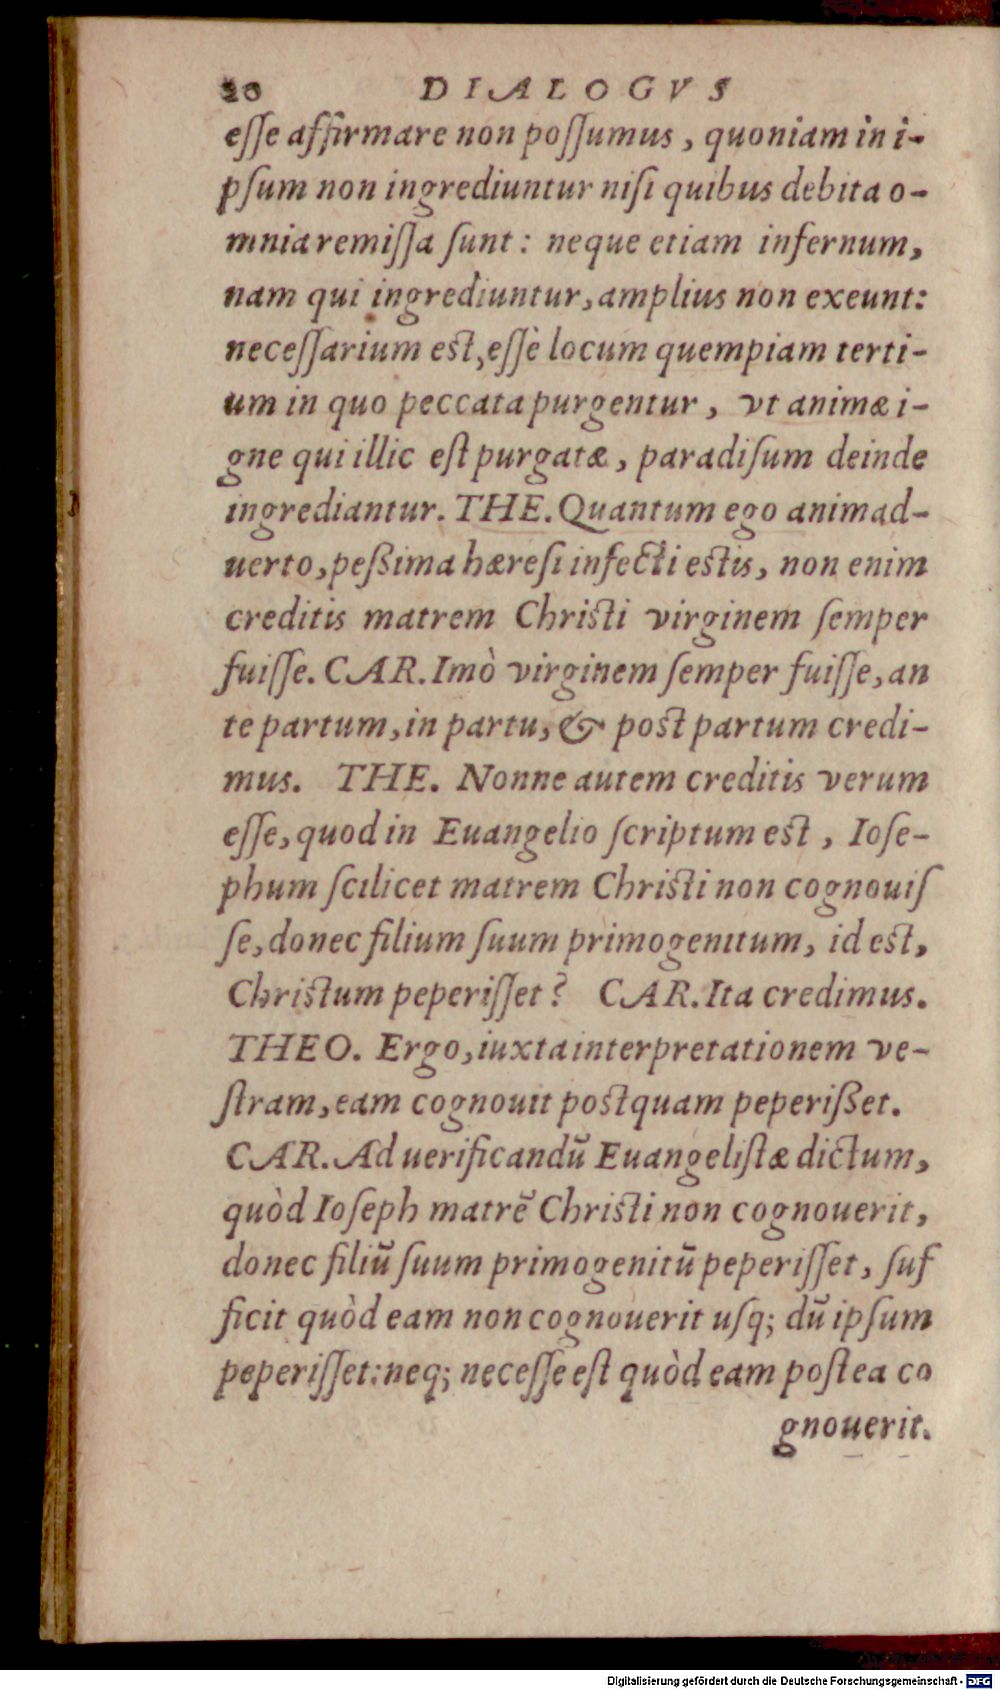 20 DIALOGVS
eſſe affirmare non poſſumus, quoniam in i-
pſum non ingrediuntur niſi quibus debita o-
mnia remiſſa ſunt: neque etiam infernum,
nam qui ingrediuntur, amplius non exeunt:
neceſſarium est, eſſè locum quempiam terti-
um in quo peccata purgentur, vt animæ i-
gne qui illic eſt purgatæ, paradiſum deinde
ingrediantur. THE. Quantum ego animad-
uerto, peßima hæreſi infecti estis, non enim
creditis matrem Christi virginem ſemper
fuiſſe. CAR. Imò virginem ſemper fuiſſe, an
te partum, in partu, & post partum credi-
mus. THE. Nonne autem creditis verum
eſſe, quod in Euangelio ſcriptum est, Ioſe-
phum ſcilicet matrem Christi non cognouiſ
ſe, donec filium ſuum primogenitum, id est,
Christum peperiſſet? CAR. Ita credimus.
THEO. Ergo, iuxta interpretationem ve-
ſtram, eam cognouit postquam peperißet.
CAR. Ad uerificandū Euangeliſtæ dictum,
quòd Ioſeph matrē Christi non cognouerit,
donec filiū ſuum primogenitū peperiſſet, ſuf
ficit quòd eam non cognouerit uſq; dū ipſum
peperiſſet: neq; neceſſe eſt quòd eam poſtea co
gnouerit.
Digitalisierung gefördert durch die Deutsche Forschungsgemeinschaft - DFG